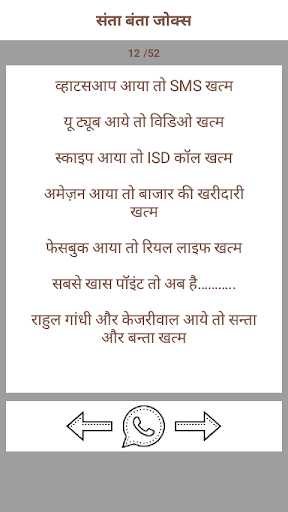 संता बंता जोक्स
12 /52
व्हाटसआप आया तो SMS खत्म
यू ट्यूब आये तो विडिओ खत्म
स्काइप आया तो ISD कॉल खत्म
अमेज़न आया तो बाजार की खरीदारी
खत्म
फेसबुक आया तो रियल लाइफ खत्म
सबसे खास पॉइंट तो अब है...........
राहुल गांधी और केजरीवाल आये तो सन्ता
और बन्ता खत्म